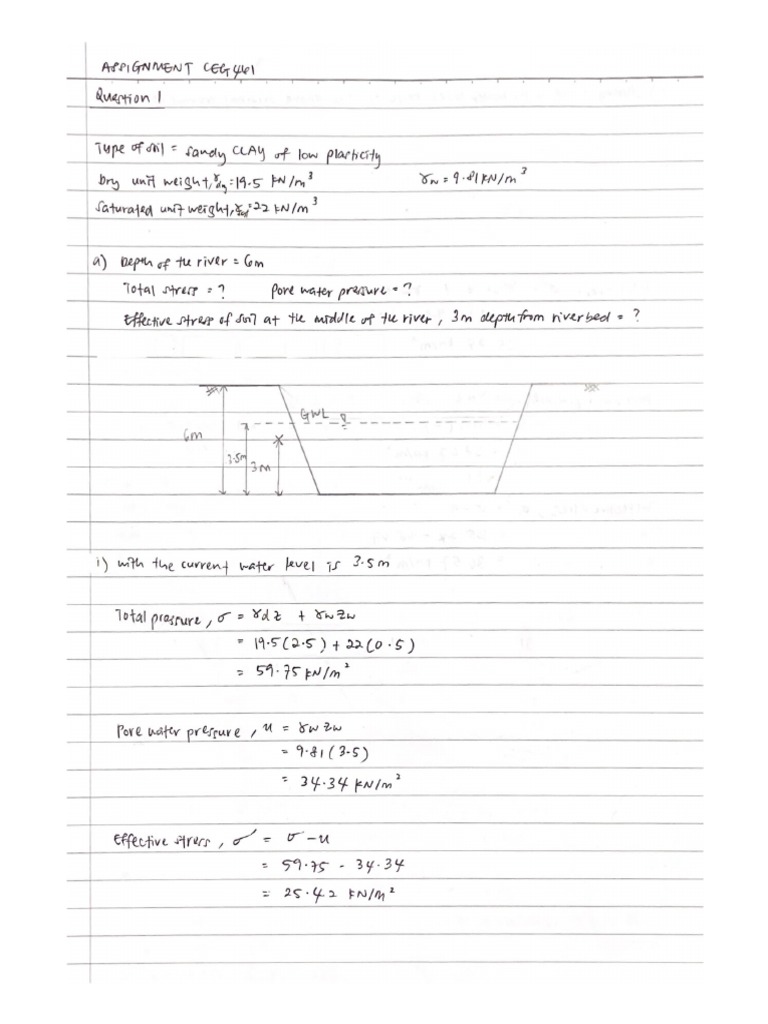 ASSIGNMENT CEG461
Question 1
Type of soil = sandy CLAY of low plasticity
Dry unit weight, γdry = 19.5 kN/m³ γw = 9.81 kN/m³
Saturated unit weight, γsat = 22 kN/m³
a) Depth of the river = 6m
Total stress = ? Pore water pressure = ?
Effective stress of soil at the middle of the river, 3m depth from riverbed = ?
GWL
6m
3.5m
3m
i) with the current water level is 3.5m
Total pressure, σ = γdz + γwzw
= 19.5(2.5) + 22(0.5)
= 59.75 kN/m²
Pore water pressure, u = γwzw
= 9.81(3.5)
= 34.34 kN/m²
Effective stress, σ' = σ - u
= 59.75 - 34.34
= 25.42 kN/m²